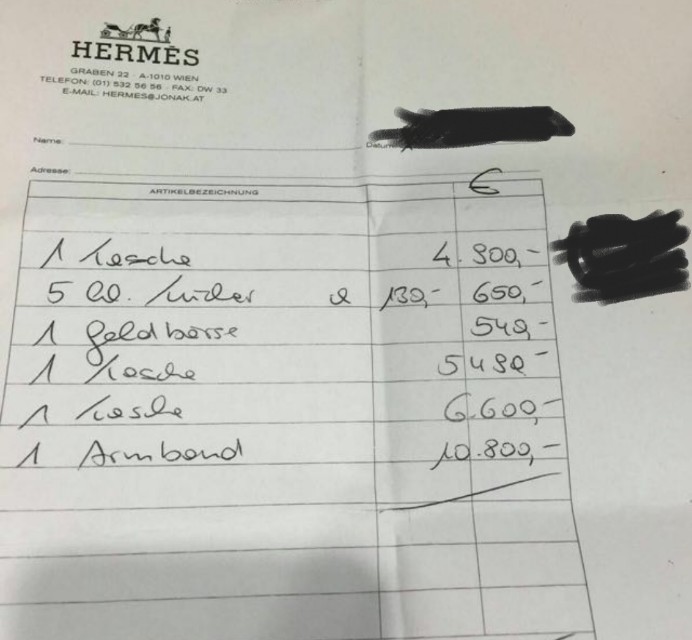 HERMÈS
GRABEN 22 · A-1010 WIEN
TELEFON: (01) 532 56 56 · FAX: DW 33
E-MAIL: HERMES@JONAK.AT
Name:
Datum:
Adresse:
ARTIKELBEZEICHNUNG €
1 Tasche 4.900,-
5 à 130,- 650,-
1 Geldbörse 540,-
1 Tasche 5490-
1 Tasche 6.600,-
1 Armband 10.800,-